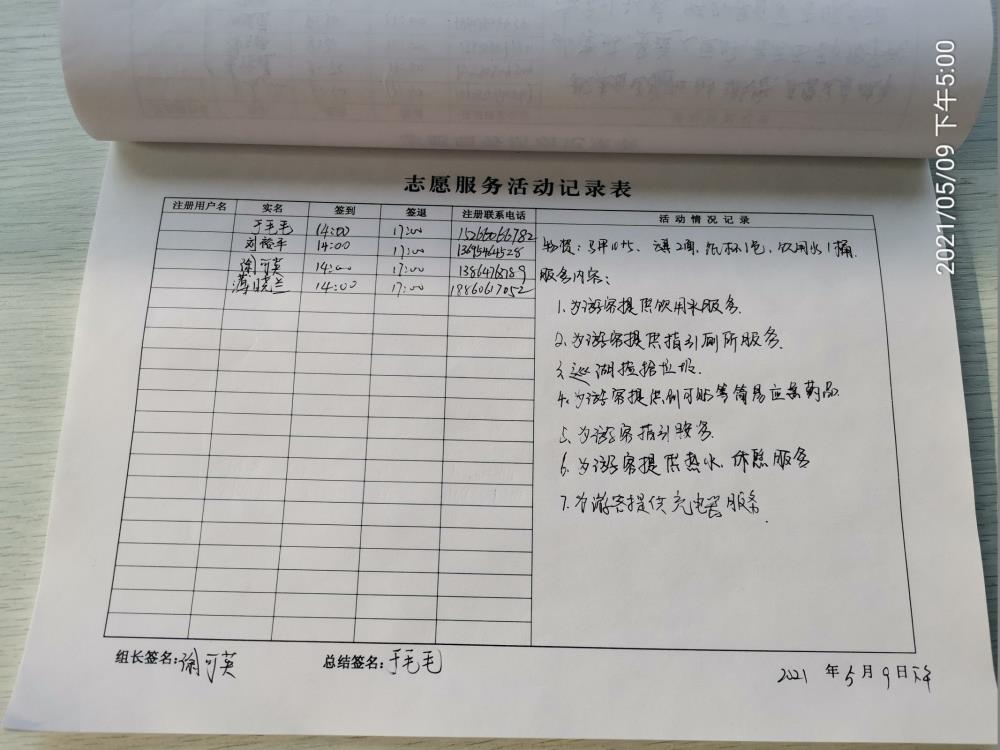 2021/05/09 下午5:00
志愿服务活动记录表
注册用户名 实名 签到 签退 注册联系电话 活动情况记录
于毛毛 14:00 17:00 15266066782
刘裕丰 14:00 17:00 13695464528
徐可英 14:00 17:00 1386476789
薄晓兰 14:00 17:00 18860617052
物资：马甲10件、旗2面、纸杯1包、饮用水1桶.
服务内容：
1. 为游客提供饮用水服务.
2. 为游客提供指引厕所服务.
3. 巡湖捡拾垃圾.
4. 为游客提供创可贴等简易应急药品
5. 为游客指引服务.
6. 为游客提供热水、休憩服务
7. 为游客提供充电器服务.
组长签名：徐可英 总结签名：于毛毛
2021 年 5 月 9 日下午